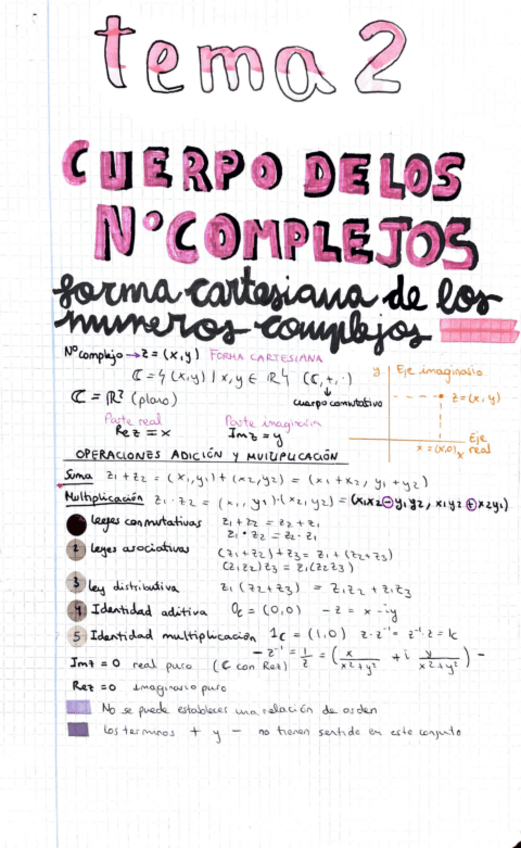 tema 2
CUERPO DE LOS
Nº COMPLEJOS
forma cartesiana de los
numeros complejos
Nº complejo → z = (x,y) FORMA CARTESIANA
ℂ = {(x,y) / x,y ∈ ℝ} (ℂ,+,·)
↓
cuerpo conmutativo
ℂ = ℝ² (plano)
Parte real
Re z = x
Parte imaginaria
Im z = y
y Eje imaginario
z = (x,y)
Eje
x = (x,0) x real
OPERACIONES ADICIÓN Y MULTIPLICACIÓN
Suma z₁ + z₂ = (x₁,y₁) + (x₂,y₂) = (x₁ + x₂, y₁ + y₂)
Multiplicación z₁ · z₂ = (x₁, y₁)·(x₂, y₂) = (x₁x₂ − y₁y₂, x₁y₂ + x₂y₁)
leyes conmutativas z₁ + z₂ = z₂ + z₁
z₁ · z₂ = z₂ · z₁
2 leyes asociativas (z₁ + z₂) + z₃ = z₁ + (z₂ + z₃)
(z₁z₂)z₃ = z₁(z₂z₃)
3 ley distributiva z₁(z₂ + z₃) = z₁z₂ + z₁z₃
4 Identidad aditiva 0c = (0,0) −z = x − iy
5 Identidad multiplicación 1c = (1,0) z · z⁻¹ = z⁻¹ · z = 1c
− z⁻¹ = 1/z = (x/(x²+y²) + i y/(x²+y²)) −
Im z = 0 real puro (ℂ con Re z)
Re z = 0 imaginario puro
No se puede establecer una relación de orden
Los terminos + y − no tienen sentido en este conjunto